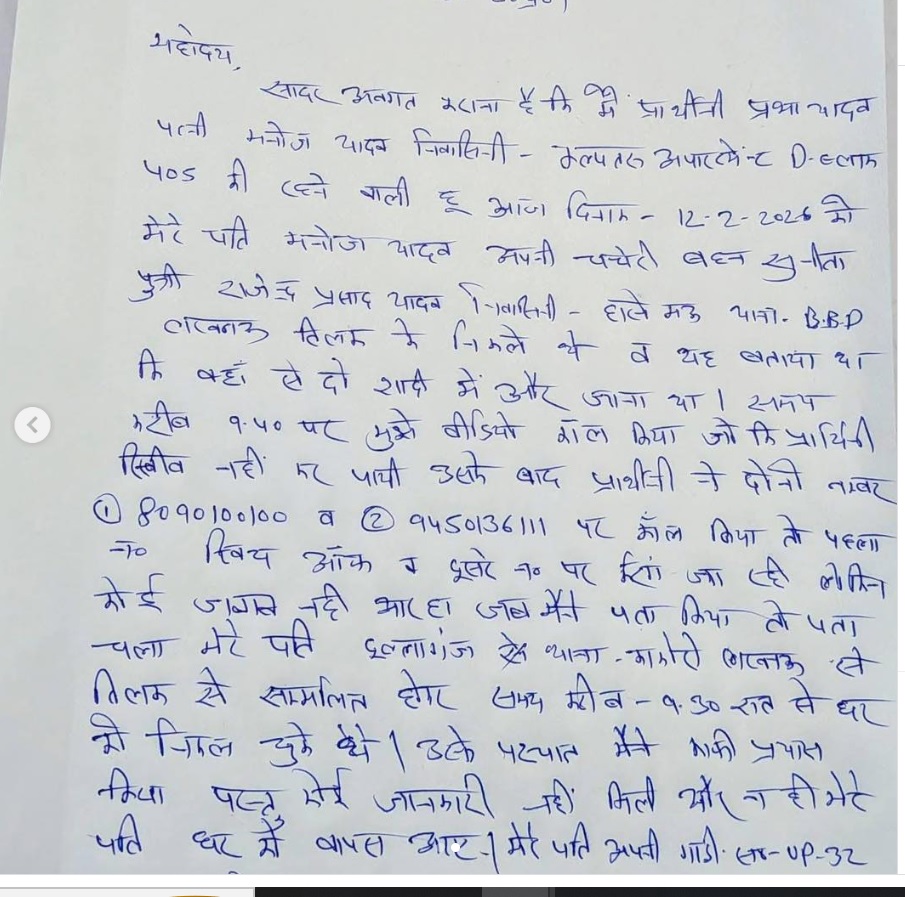 महोदय,
सादर अवगत कराना है कि मैं प्रार्थीनी प्रभा यादव
पत्नी मनोज यादव निवासिनी - कल्पतरू अपार्टमेन्ट D-ब्लाक
405 की रहने वाली हूँ आज दिनाक - 12-2-2026 को
मेरे पति मनोज यादव अपनी चचेरी बहन सुनीता
पुत्री राजेन्द्र प्रसाद यादव निवासिनी - हासेमऊ थाना. B.B.D
लखनऊ तिलक के निकले थे व यह बताया था
कि वहाँ से दो शादी में और जाना था। समय
करीब 9.40 पर मुझे वीडियो कॉल किया जो कि प्रार्थिनी
रिसीव नहीं कर पायी उसके बाद प्रार्थीनी ने दोनो नम्बर
① 8090100100 व ② 9450136111 पर कॉल किया तो पहला
न० स्विच ऑफ व दूसरे न० पर रिंग जा रही लेकिन
कोई जवाब नही आ रहा जब मैंने पता किया तो पता
चला मेरे पति थाना - काकोरी लखनऊ से
तिलक से सम्मलित होकर समय करीब - 9.30 रात से घर
को निकल चुके थे। उसके पश्चात मैंने काफी प्रयास
किया परन्तु कोई जानकारी नहीं मिली और न ही मेरे
पति घर में वापस आए। मेरे पति अपनी गाडी. UP-32